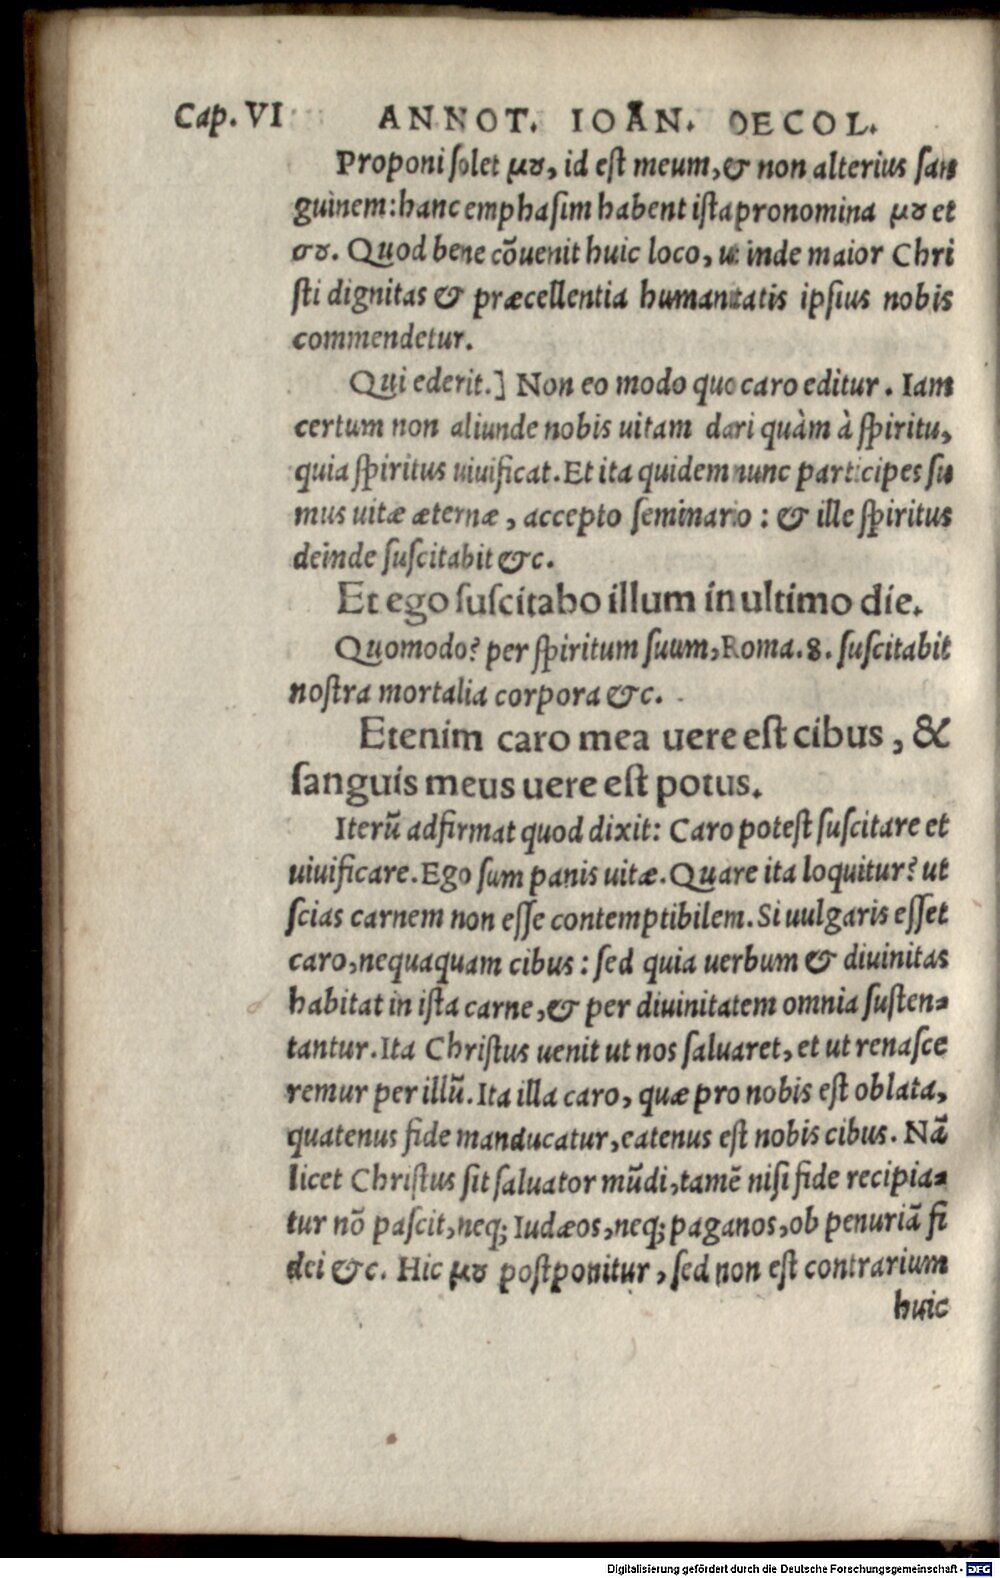 Cap. VI ANNOT. IOAN. OECOL.
Proponi solet μȣ, id est meum, & non alterius san
guinem: hanc emphasim habent ista pronomina μȣ et
σȣ. Quod bene cōuenit huic loco, ut inde maior Chri
sti dignitas & præcellentia humanitatis ipsius nobis
commendetur.
Qui ederit.] Non eo modo quo caro editur. Iam
certum non aliunde nobis uitam dari quàm à spiritu,
quia spiritus uiuificat. Et ita quidem nunc participes su
mus uitæ æternæ, accepto seminario: & ille spiritus
deinde suscitabit &c.
Et ego suscitabo illum in ultimo die.
Quomodo? per spiritum suum, Roma. 8. suscitabit
nostra mortalia corpora &c.
Etenim caro mea uere est cibus, &
sanguis meus uere est potus.
Iterū adfirmat quod dixit: Caro potest suscitare et
uiuificare. Ego sum panis uitæ. Quare ita loquitur? ut
scias carnem non esse contemptibilem. Si uulgaris esset
caro, nequaquam cibus: sed quia uerbum & diuinitas
habitat in ista carne, & per diuinitatem omnia susten-
tantur. Ita Christus uenit ut nos saluaret, et ut renasce
remur per illū. Ita illa caro, quæ pro nobis est oblata,
quatenus fide manducatur, eatenus est nobis cibus. Nā
licet Christus sit saluator mūdi, tamē nisi fide recipia-
tur nō pascit, neq; Iudæos, neq; paganos, ob penuriā fi
dei &c. Hic μȣ postponitur, sed non est contrarium
huic
Digitalisierung gefördert durch die Deutsche Forschungsgemeinschaft - DFG